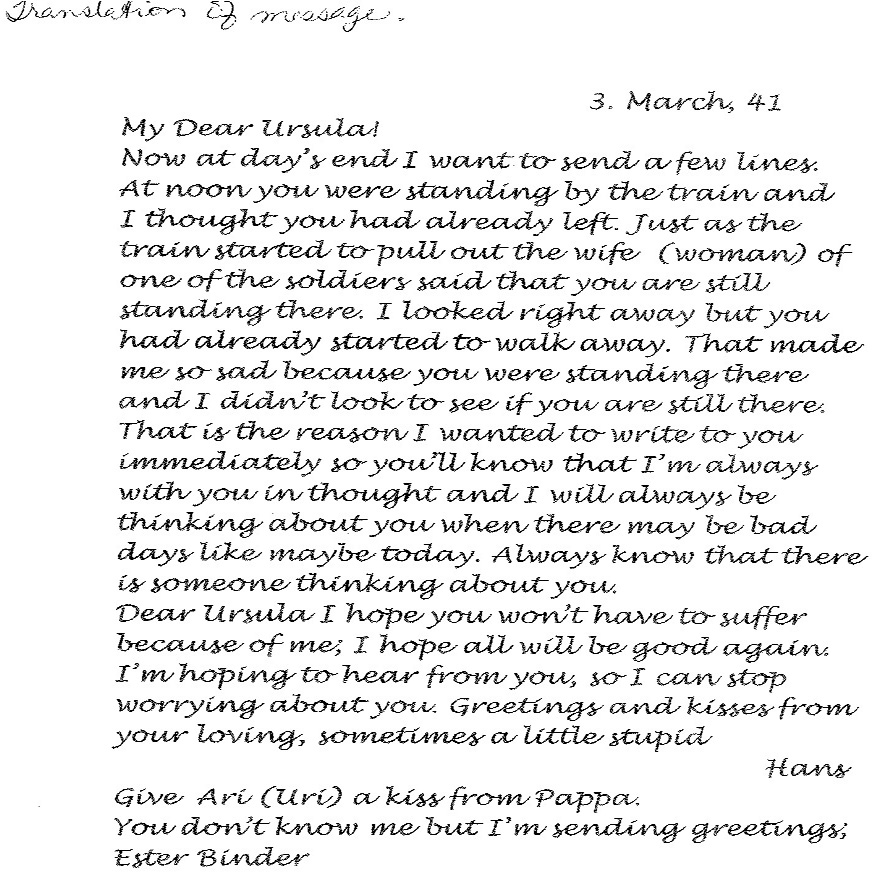 Translation of message.
3. March, 41
My Dear Ursula!
Now at day's end I want to send a few lines.
At noon you were standing by the train and
I thought you had already left. Just as the
train started to pull out the wife (woman) of
one of the soldiers said that you are still
standing there. I looked right away but you
had already started to walk away. That made
me so sad because you were standing there
and I didn't look to see if you are still there.
That is the reason I wanted to write to you
immediately so you'll know that I'm always
with you in thought and I will always be
thinking about you when there may be bad
days like maybe today. Always know that there
is someone thinking about you.
Dear Ursula I hope you won't have to suffer
because of me; I hope all will be good again.
I'm hoping to hear from you, so I can stop
worrying about you. Greetings and kisses from
your loving, sometimes a little stupid
Hans
Give Ari (Uri) a kiss from Pappa.
You don't know me but I'm sending greetings;
Ester Binder